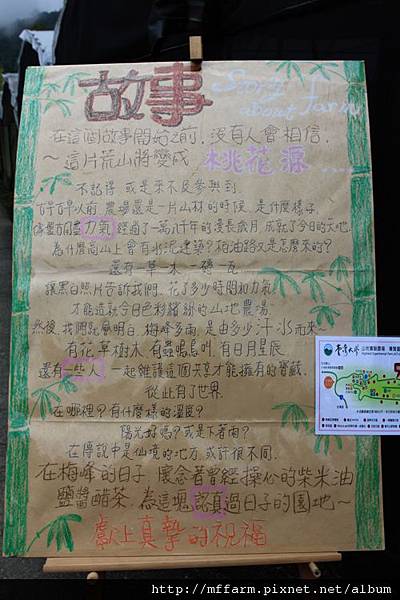 故事
Story about farm
在這個故事開始之前，沒有人會相信，
～這片荒山將變成 桃花源.....
不記得 或是來不及參與到
好早好早以前，農場還是一片山林的時候，是什麼樣子，
力氣，經過了一萬八千年的漫長歲月，成就了今日的天地，
為什麼高山上會有水泥建築？柏油路又是怎麼來的？
還有一草一木、一磚一瓦
讓黑白照片告訴我們，花了多少時間和力氣，
才能造就今日色彩繽紛的山地農場．
然後，我們就會明白，梅峰多雨，是由多少汗水而來，
有花草樹木，有蟲鳴鳥叫，有日月星辰
還有一些人，一起維護這個共享才能擁有的寶藏．
從此有了世界．
在哪裡？有什麼樣的溫度？
陽光好嗎？或是下著雨？
在傳說中是仙境的地方，或許很不同．
在梅峰的日子，懷念著曾經操心的柴米油
鹽醬醋茶，為這塊認真過日子的園地～
獻上真摯的祝福
臺灣大學
http://mffarm.pixnet.net/album